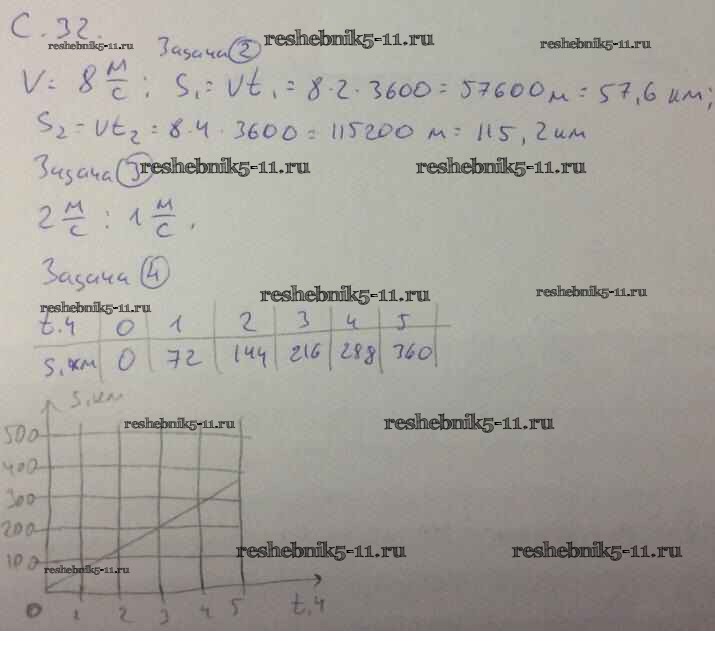 С. 32.
reshebnik5-11.ru
Задача 2
reshebnik5-11.ru
reshebnik5-11.ru
V = 8 м/с; S₁ = Vt₁ = 8·2·3600 = 57600 м = 57,6 км;
S₂ = Vt₂ = 8·4·3600 = 115200 м = 115,2 км
Задача 3
reshebnik5-11.ru
reshebnik5-11.ru
2 м/с : 1 м/с.
Задача 4
reshebnik5-11.ru
reshebnik5-11.ru
reshebnik5-11.ru
t.ч 0 1 2 3 4 5
S.км 0 72 144 216 288 360
S.км
reshebnik5-11.ru
reshebnik5-11.ru
500
400
300
200
reshebnik5-11.ru
reshebnik5-11.ru
100
reshebnik5-11.ru
0 1 2 3 4 5 t.ч